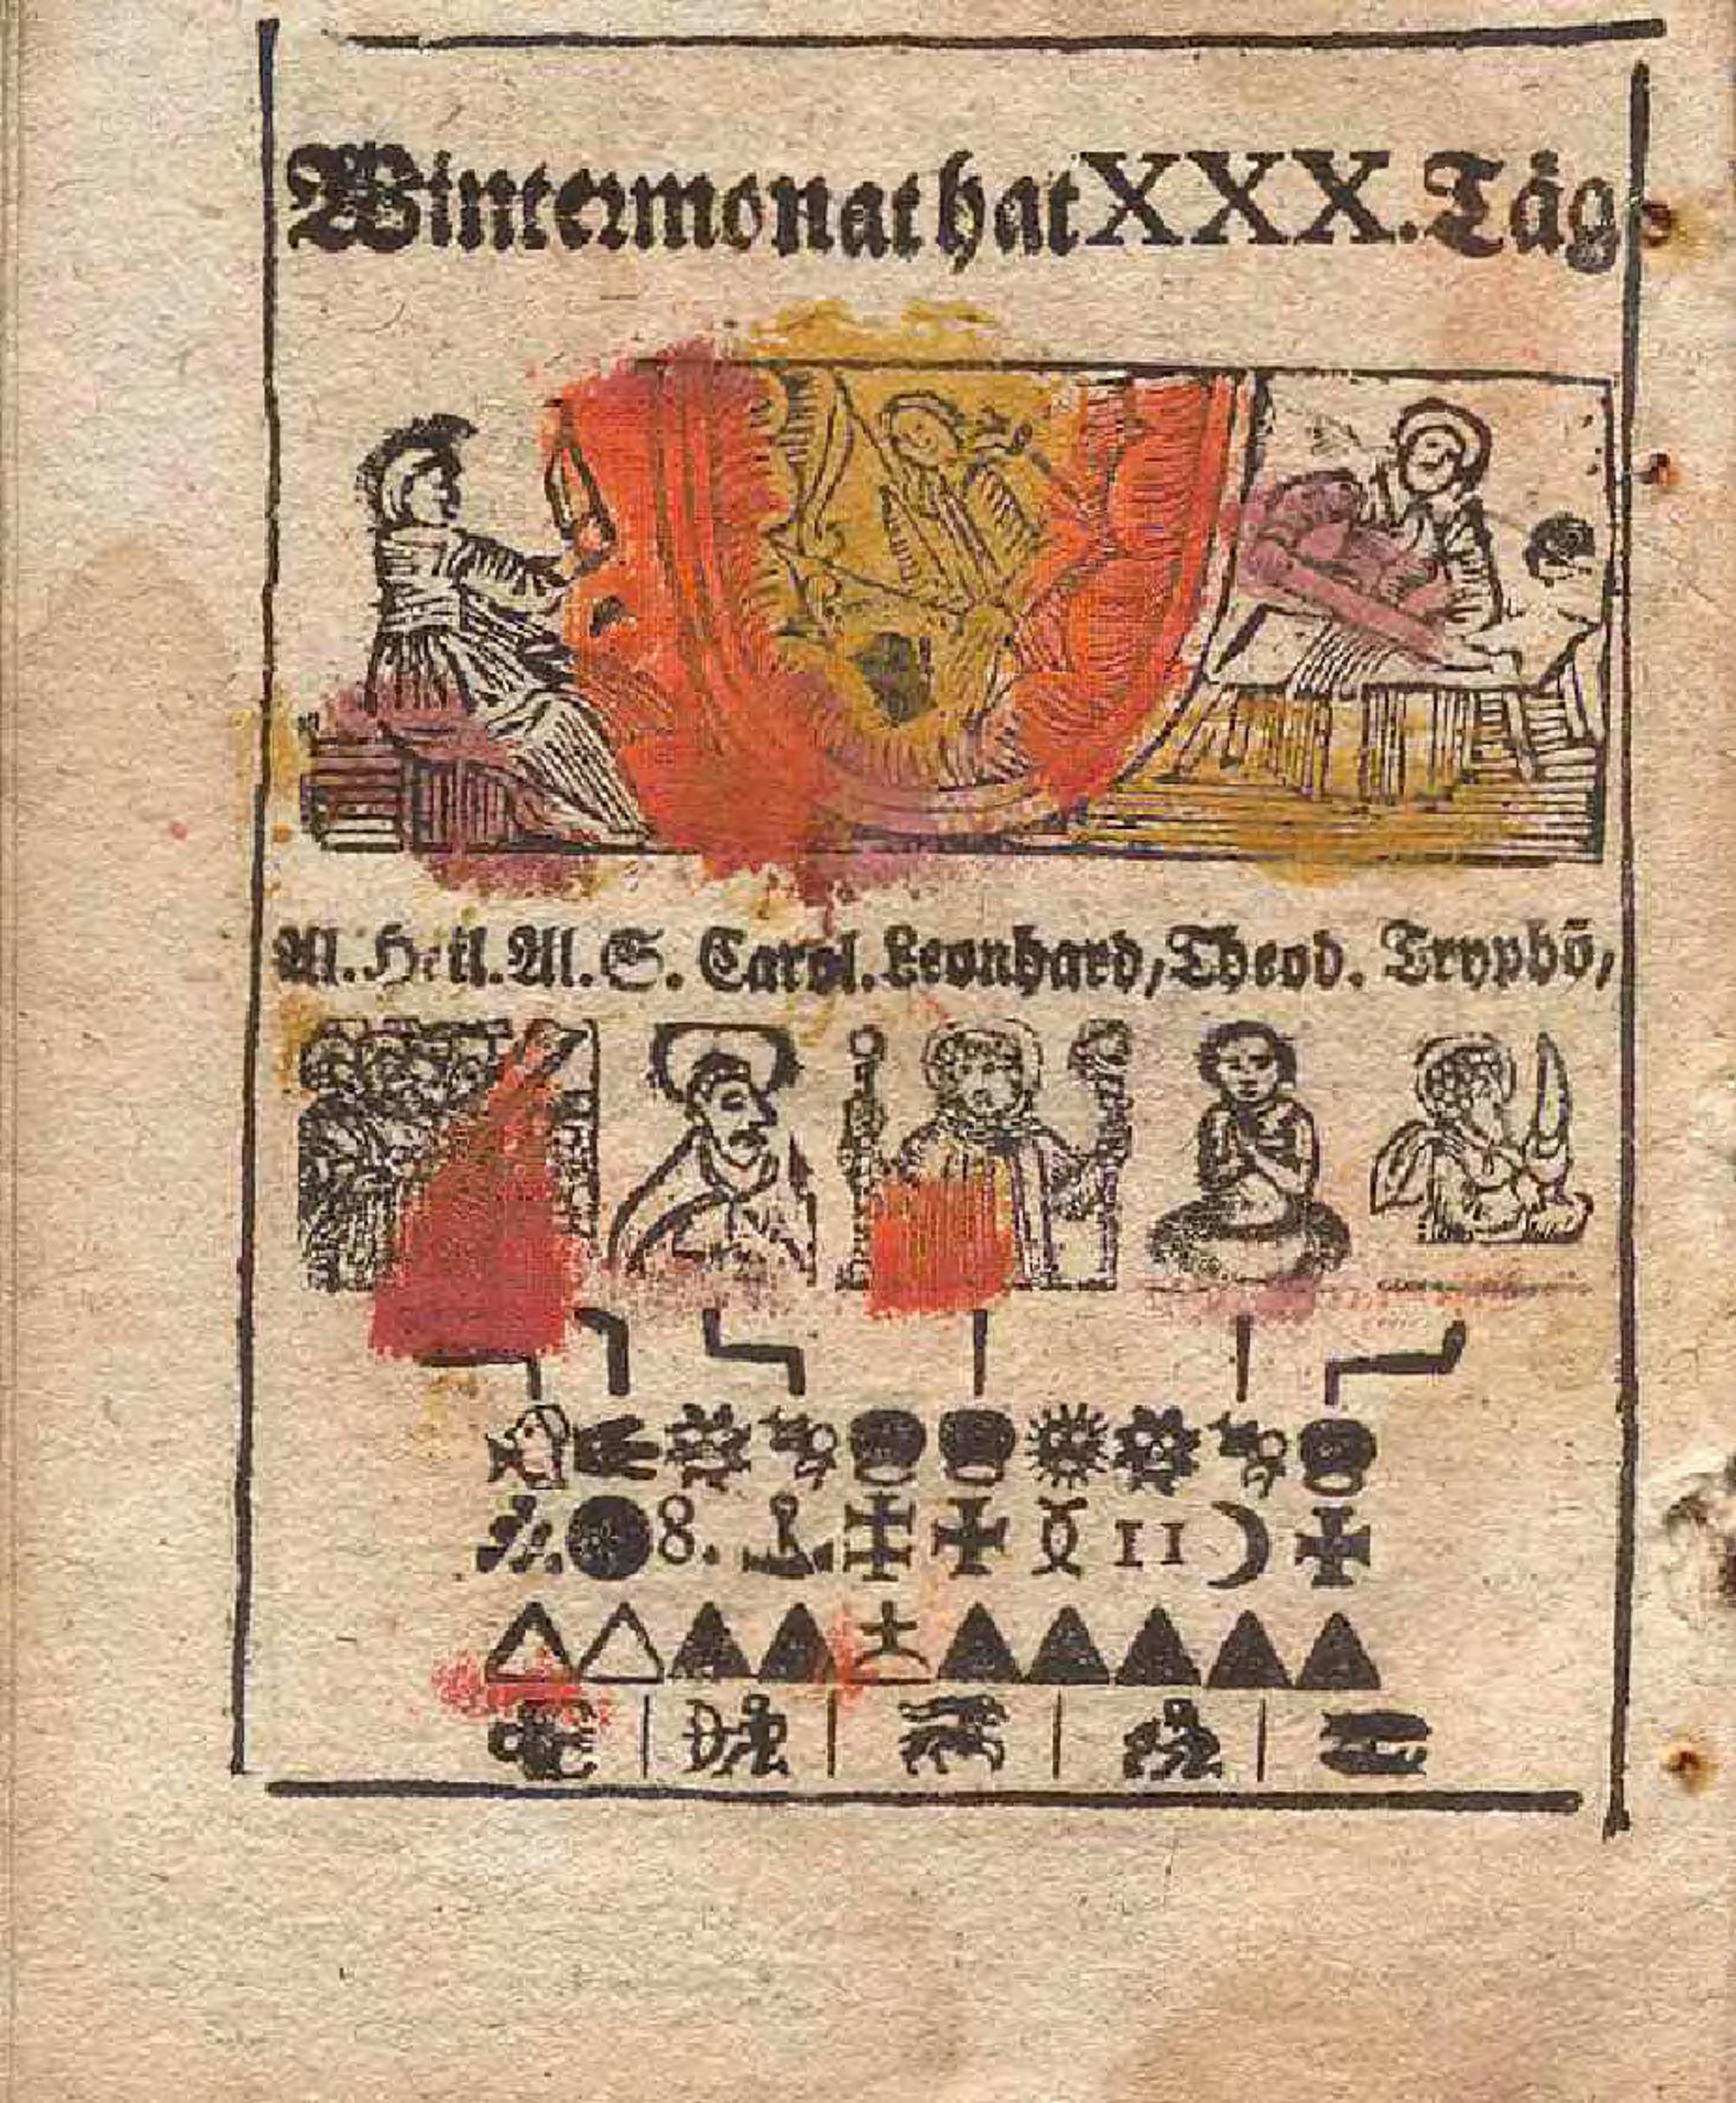 Wintermonat hat XXX. Täg
A. Heil. All. S. Carol. Leonhard, Theod. Tryphō,
8. 11